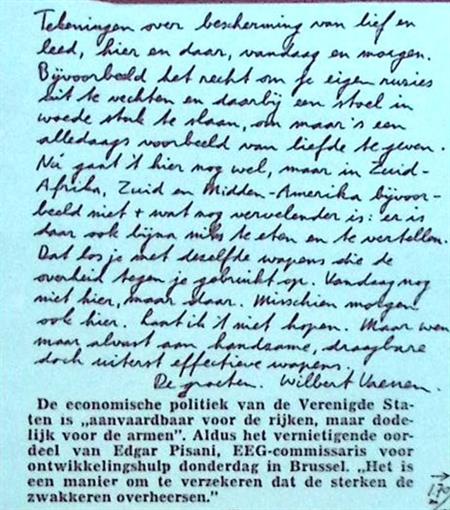 Tekeningen over bescherming van lief en
leed, hier en daar, vandaag en morgen.
Bijvoorbeeld het recht om je eigen rusies
uit te vechten en daarbij een stoel in
woede stuk te slaan, om maar's een
alledaags voorbeeld van liefde te geven.
Nú gaat 't hier nog wel, maar in Zuid-
Afrika, Zuid en Midden-Amerika bijvoor-
beeld niet + wat nog vervelender is: er is
daar ook bijna niks te eten en te vertellen.
Dat los je met dezelfde wapens die de
overheid tegen je gebruikt op. Vandaag nog
niet hier, maar daar. Misschien morgen
ook hier. Laat ik 't niet hopen. Maar wen
maar alvast aan handzame, draagbare
doch uiterst effectieve wapens.
De groeten. Wilbert
De economische politiek van de Verenigde Sta-
ten is „aanvaardbaar voor de rijken, maar dode-
lijk voor de armen”. Aldus het vernietigende oor-
deel van Edgar Pisani, EEG-commissaris voor
ontwikkelingshulp donderdag in Brussel. „Het is
een manier om te verzekeren dat de sterken de
zwakkeren overheersen.”